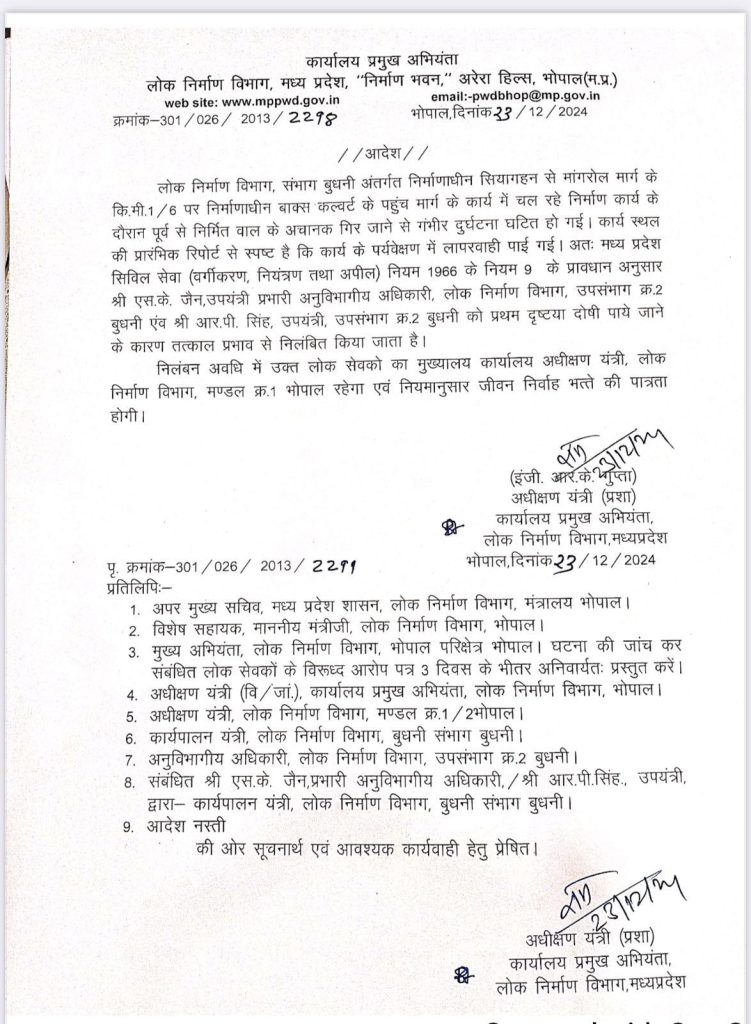 कार्यालय प्रमुख अभियंता
लोक निर्माण विभाग, मध्य प्रदेश, "निर्माण भवन," अरेरा हिल्स, भोपाल(म.प्र.)
web site: www.mppwd.gov.in email:-pwdbhop@mp.gov.in
क्रमांक–301/026/ 2013/2298 भोपाल,दिनांक 23/12/2024
//आदेश//
लोक निर्माण विभाग, संभाग बुधनी अंतर्गत निर्माणाधीन सियागहन से मांगरोल मार्ग के
कि.मी.1/6 पर निर्माणाधीन बाक्स कल्वर्ट के पहुंच मार्ग के कार्य में चल रहे निर्माण कार्य के
दौरान पूर्व से निर्मित वाल के अचानक गिर जाने से गंभीर दुर्घटना घटित हो गई। कार्य स्थल
की प्रारंभिक रिपोर्ट से स्पष्ट है कि कार्य के पर्यवेक्षण में लापरवाही पाई गई। अतः मध्य प्रदेश
सिविल सेवा (वर्गीकरण, नियंत्रण तथा अपील) नियम 1966 के नियम 9 के प्रावधान अनुसार
श्री एस.के. जैन,उपयंत्री प्रभारी अनुविभागीय अधिकारी, लोक निर्माण विभाग, उपसंभाग क्र.2
बुधनी एंव श्री आर.पी. सिंह, उपयंत्री, उपसंभाग क्र.2 बुधनी को प्रथम दृष्टया दोषी पाये जाने
के कारण तत्काल प्रभाव से निलंबित किया जाता है।
निलंबन अवधि में उक्त लोक सेवको का मुख्यालय कार्यालय अधीक्षण यंत्री, लोक
निर्माण विभाग, मण्डल क्र.1 भोपाल रहेगा एवं नियमानुसार जीवन निर्वाह भत्ते की पात्रता
होगी।
(इंजी. आर.के. गुप्ता)
अधीक्षण यंत्री (प्रशा)
कार्यालय प्रमुख अभियंता,
लोक निर्माण विभाग,मध्यप्रदेश
पृ. क्रमांक–301/026/ 2013/2299 भोपाल,दिनांक 23/12/2024
प्रतिलिपिः–
1. अपर मुख्य सचिव, मध्य प्रदेश शासन, लोक निर्माण विभाग, मंत्रालय भोपाल।
2. विशेष सहायक, माननीय मंत्रीजी, लोक निर्माण विभाग, भोपाल।
3. मुख्य अभियंता, लोक निर्माण विभाग, भोपाल परिक्षेत्र भोपाल। घटना की जांच कर
संबंधित लोक सेवकों के विरूध्द आरोप पत्र 3 दिवस के भीतर अनिवार्यतः प्रस्तुत करें।
4. अधीक्षण यंत्री (वि/जां.), कार्यालय प्रमुख अभियंता, लोक निर्माण विभाग, भोपाल।
5. अधीक्षण यंत्री, लोक निर्माण विभाग, मण्डल क्र.1/2भोपाल।
6. कार्यपालन यंत्री, लोक निर्माण विभाग, बुधनी संभाग बुधनी।
7. अनुविभागीय अधिकारी, लोक निर्माण विभाग, उपसंभाग क्र.2 बुधनी।
8. संबंधित श्री एस.के. जैन,प्रभारी अनुविभागीय अधिकारी,/श्री आर.पी.सिंह., उपयंत्री,
द्वारा– कार्यपालन यंत्री, लोक निर्माण विभाग, बुधनी संभाग बुधनी।
9. आदेश नस्ती
की ओर सूचनार्थ एवं आवश्यक कार्यवाही हेतु प्रेषित।
अधीक्षण यंत्री (प्रशा)
कार्यालय प्रमुख अभियंता,
लोक निर्माण विभाग,मध्यप्रदेश